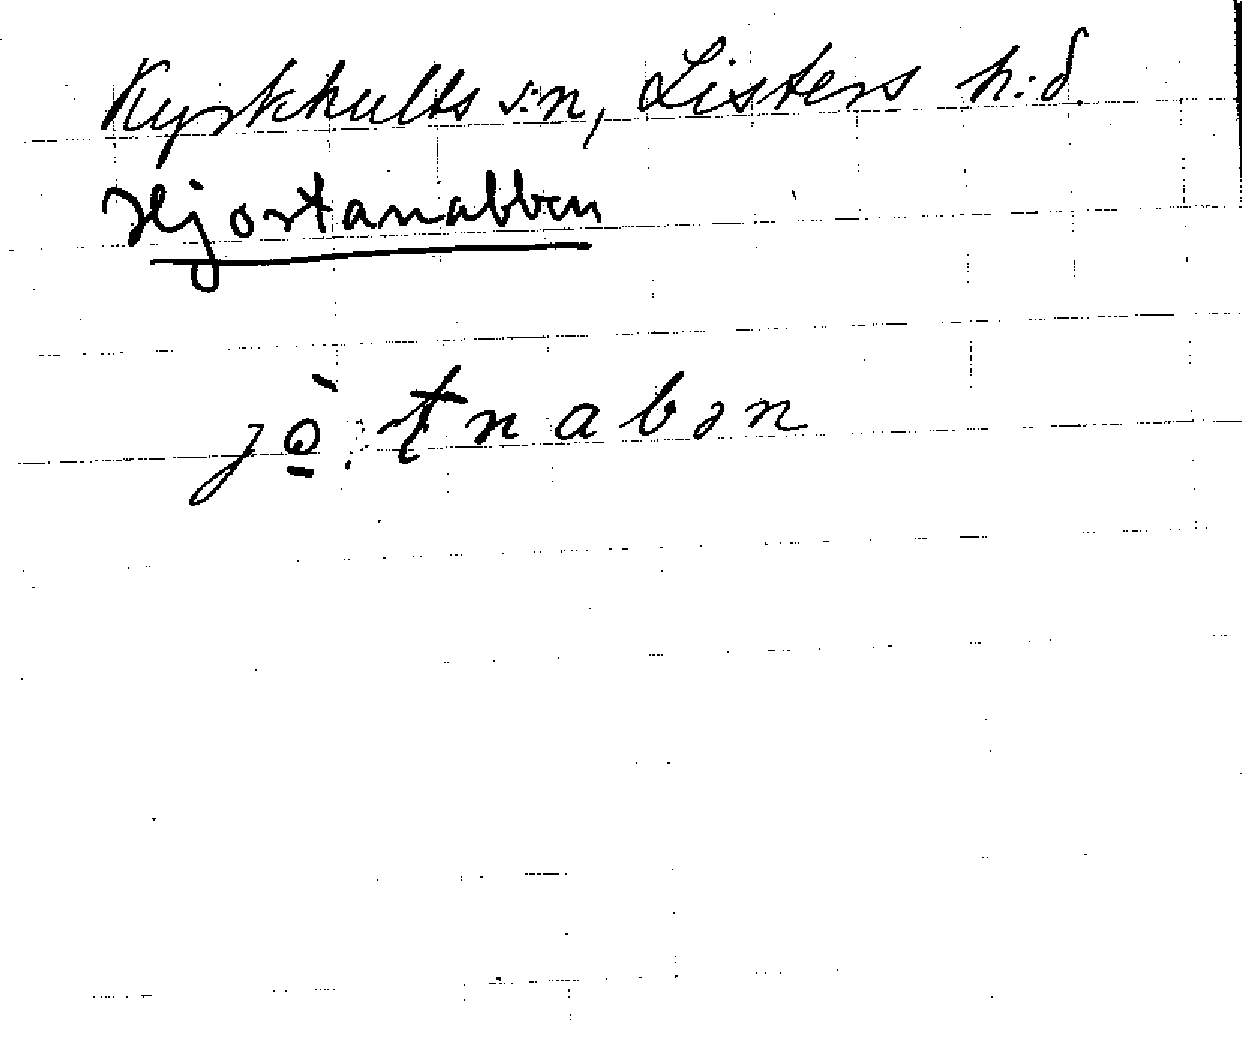 Kyrkhults s:n, Listers h:d.
Hjortanabben
jò̱:tnabən